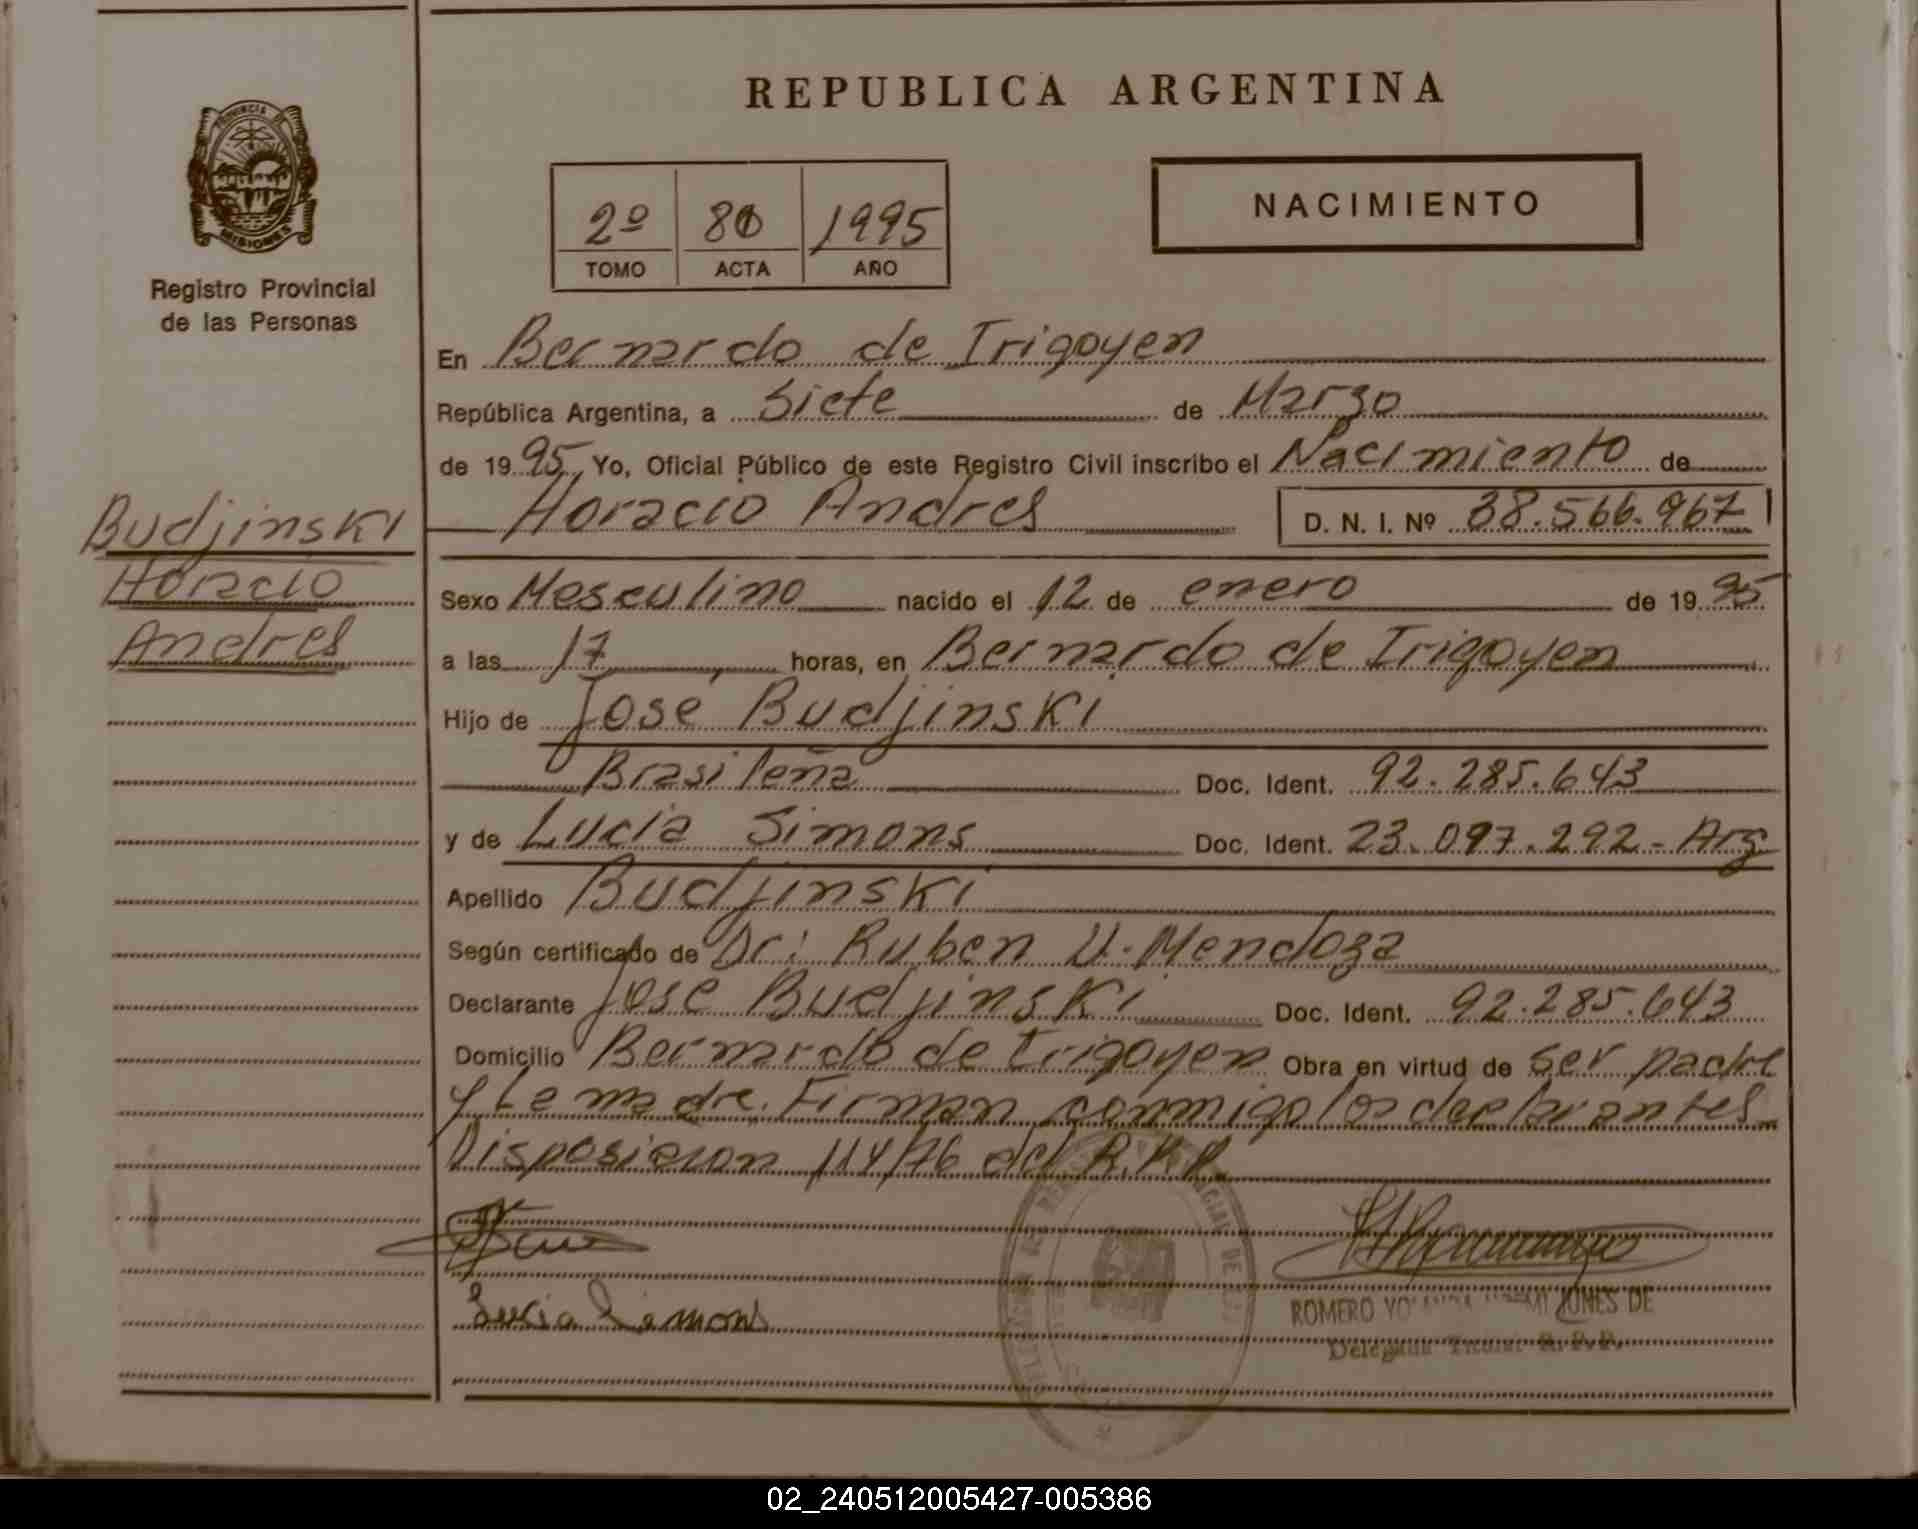 REPUBLICA ARGENTINA
PROVINCIA DE
MISIONES
Registro Provincial
de las Personas
2º
TOMO
ACTA
1995
AÑO
NACIMIENTO
En Bernardo de Irigoyen
República Argentina, a Siete de Marzo
de 1995 Yo, Oficial Público de este Registro Civil inscribo el Nacimiento de
Horacio Andres D. N. I. Nº 38.566.967
Budjinski
Horacio
Andres
Sexo Mesculino nacido el 12 de enero de 1995
a las 17 horas, en Bernardo de Irigoyen
Hijo de José Budjinski
Brasileña Doc. Ident. 92.285.643
y de Lucia Simons Doc. Ident. 23.097.292 - Arg
Apellido Budjinski
Según certificado de Dr: Ruben U. Mendoza
Declarante José Budjinski Doc. Ident. 92.285.643
Domicilio Bernardo de Irigoyen Obra en virtud de ser padre
y La madre. Firman conmigo los declarantes
Disposicion 114/76 del R.P.P.
Lucia Simons
ROMERO DE
Delegada Titular R.P.P.
02_240512005427-005386